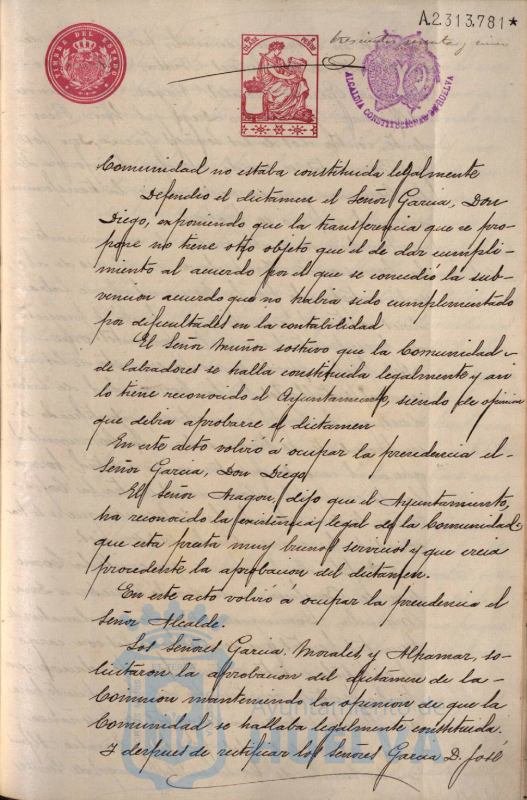 A.2.313.781*
trescientos sesenta y cinco
TIMBRE DEL ESTADO
ALCALDIA CONSTITUCIONAL DE HUELVA
Comunidad no estaba constituida legalmente
Defendio el dictamen el Señor Garcia, Don
Diego, exponiendo que la transferencia que se pro-
pone no tiene otro objeto que el de dar cumpli-
miento al acuerdo por el que se concedió la sub-
vencion acuerdo que no habia sido cumplimentado
por dificultades en la contabilidad
El Señor Muñoz sostuvo que la Comunidad
de labradores se halla constituida legalmente y asi
lo tiene reconocido el Ayuntamiento, siendo de opinion
que debia aprobarse el dictamen
En este acto volvió á ocupar la presidencia el
Señor Garcia, Don Diego
El Señor Aragon, dijo que el Ayuntamiento,
ha reconocido la existencia legal de la Comunidad
que esta presta muy buenos servicios y que creia
procedente la aprobacion del dictamen.
En este acto volvió á ocupar la presidencia el
Señor Alcalde.
Los Señores Garcia Morales, y Alpamar, so-
licitaron la aprobacion del dictamen de la
Comision manteniendo la opinion de que la
Comunidad se hallaba legalmente constituida.
Y despues de rectificar los Señores Garcia D. José